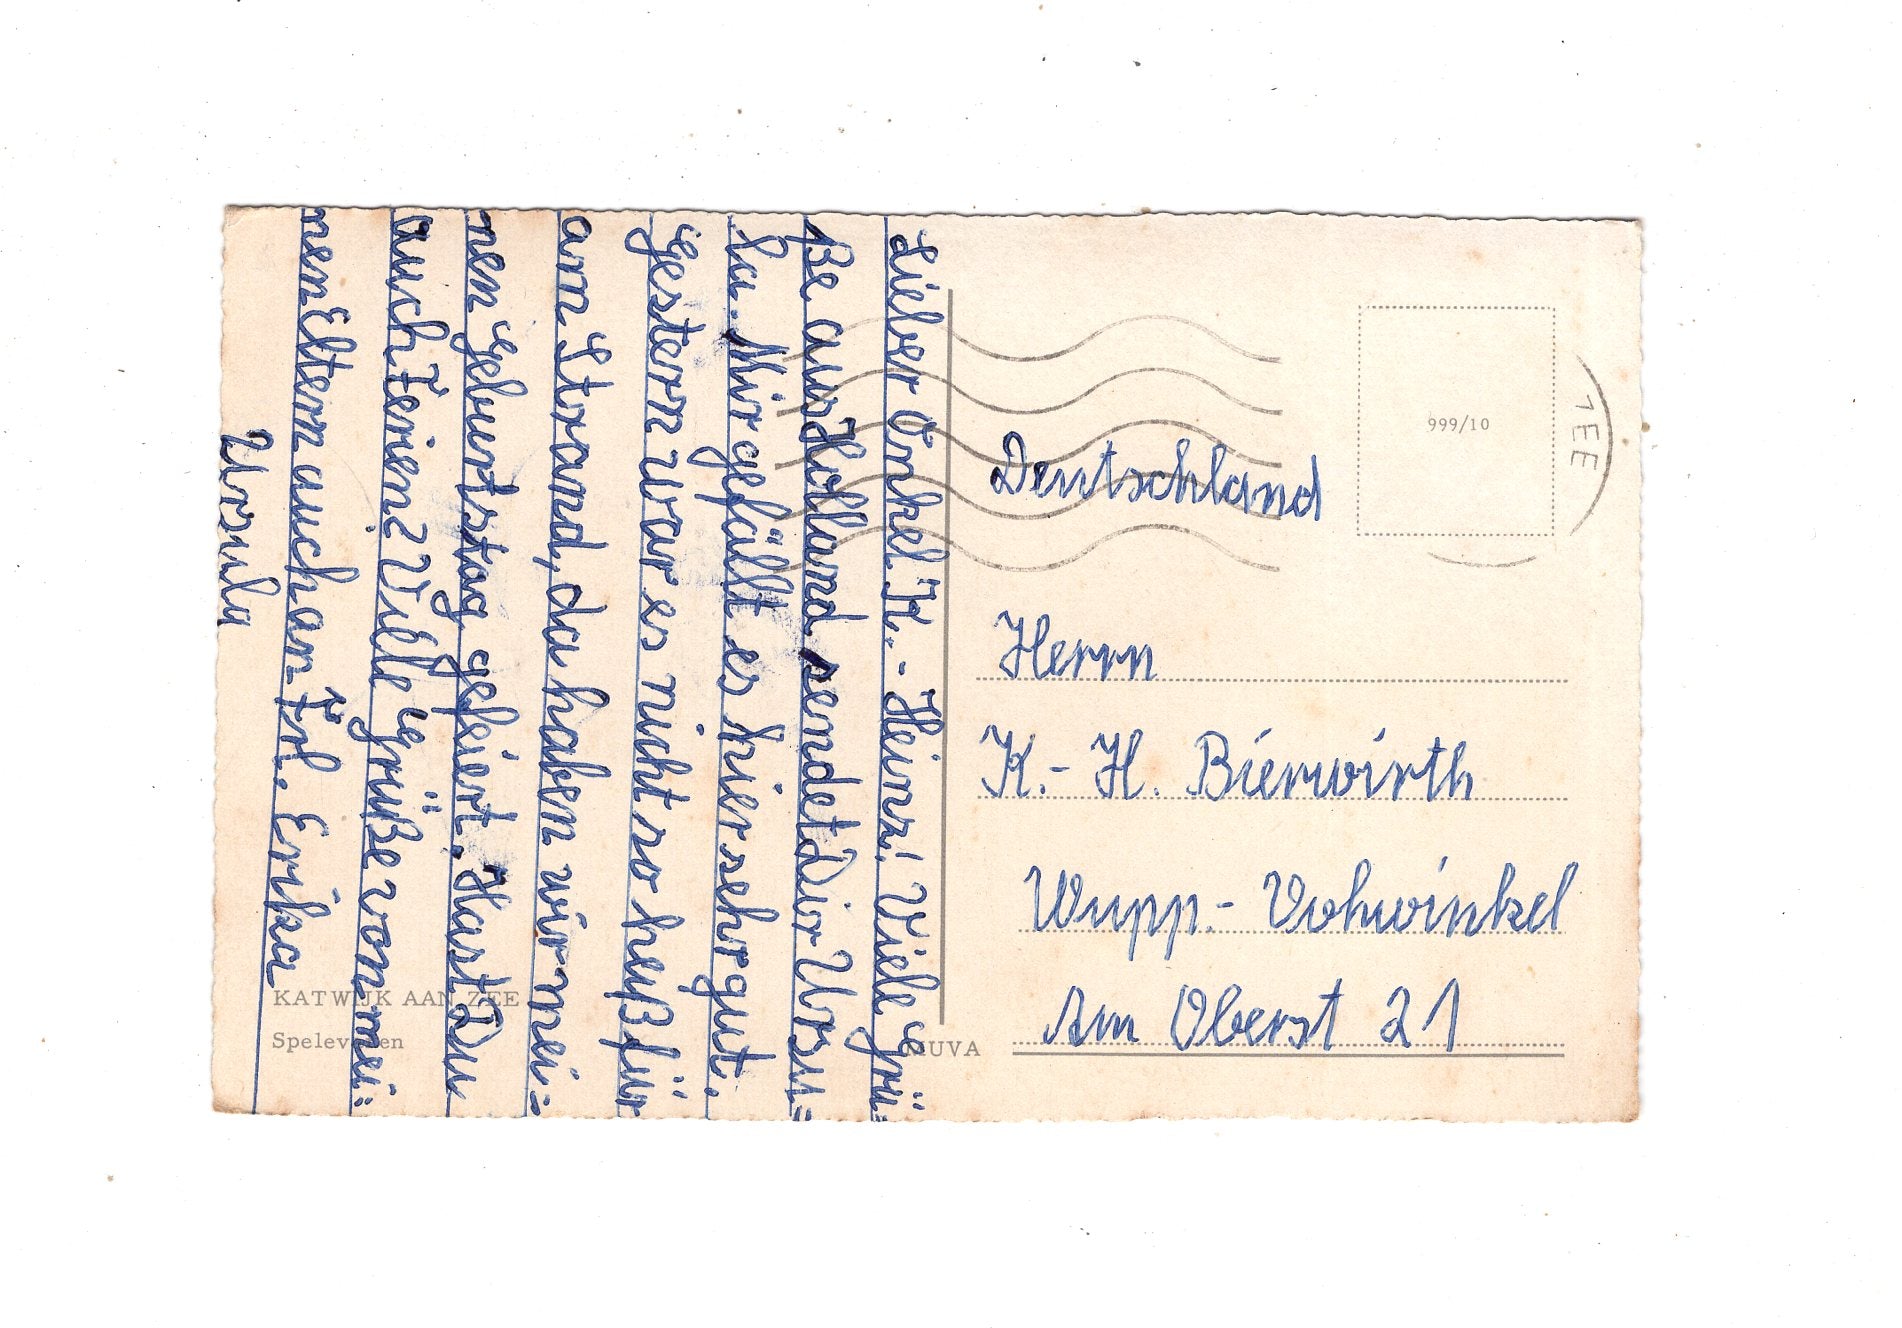 Lieber Onkel K.-Heinz! Viele Grü=
ße aus Holland sendet Dir Ursu=
la. Mir gefällt es hier sehr gut.
Gestern war es nicht so heiß für
am Strand, da haben wir mei=
nen Geburtstag gefeiert. Hast Du
auch Ferien? Viele Grüße von mei=
nen Eltern auch an Frl. Erika
Ursula
Deutschland
Herrn
K.-H. Bierwirth
Wupp.-Vohwinkel
Am Oberst 21
999/10
ZEE
KATWIJK AAN ZEE
Spelevaren
MUVA